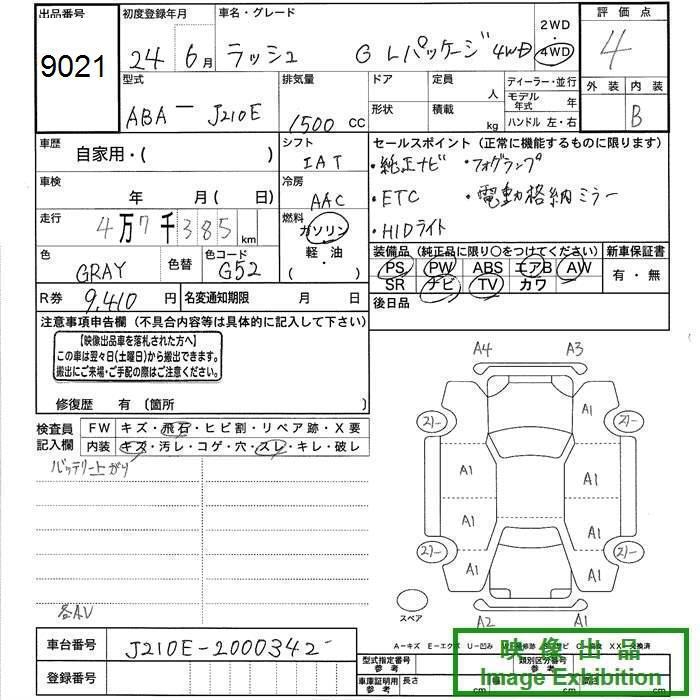 出品番号 初度登録年月 車名・グレード 2WD・4WD 評価点
9021 24 6月 ラッシュ G Lパッケージ 4WD 4
型式 排気量 ドア 定員 人 ディーラー・並行 外装 内装
ABA-J210E 1500 CC 形状 積載 kg モデル年式 年 ハンドル 左・右 B
車歴 シフト セールスポイント (正常に機能するものに限ります)
自家用・( ) IAT ・純正ナビ ・フォグランプ
車検 冷房 ・ETC ・電動格納ミラー
年 月( 日) AAC ・HIDライト
走行 4万7千385km 燃料 ガソリン・軽・油・( )
色 GRAY 色替 色コード G52
装備品 (純正品に限り〇をつけてください) 新車保証書
PS PW ABS エアB AW 有・無
SR ナビ TV カワ
R券 9,410円 名変通知期限 月 日 後日品
注意事項申告欄 (不具合内容等は具体的に記入して下さい)
【映像出品車を落札された方へ】
この車は翌々日(土曜日)から搬出できます。
搬出にご来場・ご手配の際はご注意ください。
修復歴 有 (箇所 )
検査員記入欄 FW キズ・飛石・ヒビ割・リペア跡・X要
内装 キズ・汚レ・コゲ・穴・スレ・キレ・破レ
バッテリー上がり
各AV
A4 A3
A1
A1 A1 A1
A1 A1
A1 A1
A2 A1
スペア
A-キズ E-エクボ U-凹み
車台番号 J210E-2000342
登録番号
型式指定番号 参考 類別区分番号 参考
車庫証明用 参考 長さ cm cm cm
映像出品
Image Exhibition